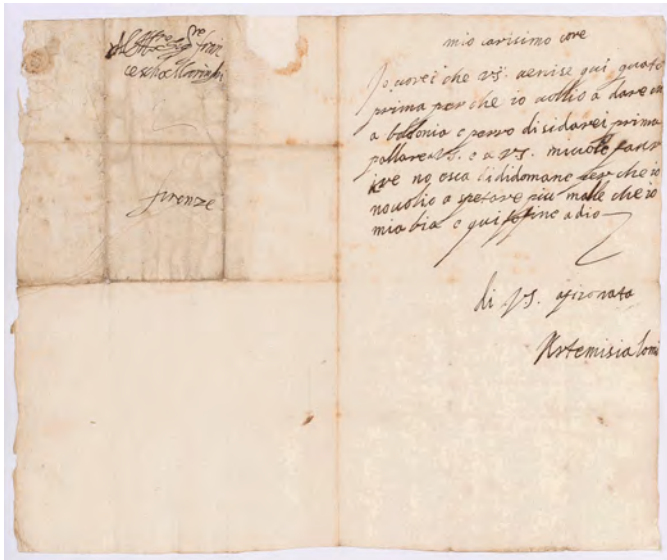 fran
cescho Maringhi
firenze
mio carisimo core
Io vorei che vs. venise qui quato
prima per che io vollio a dare in
a bolonia e perro disidarei prima
parllare a vs. e a vs. mi vole
ive no esca di di domane per che io
no volio a spetare piu malle che io
mi abia e qui fo fine a dio
di vs. afizonata
Artemisia lomi